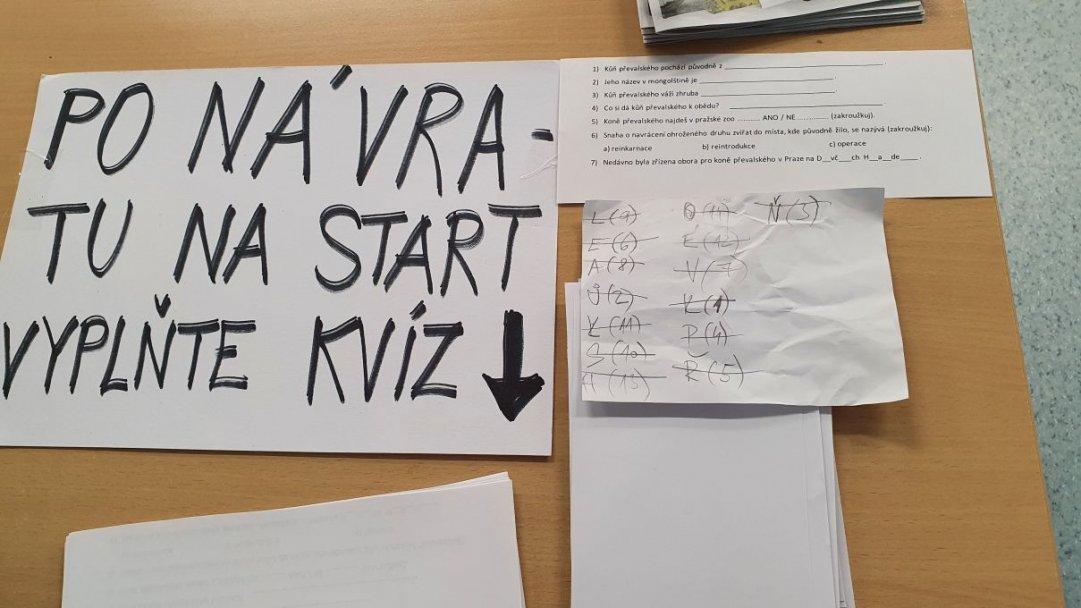 PO NÁVRA-
TU NA START
VYPLŇTE KVÍZ
1) Kůň převalského pochází původně z ________________.
2) Jeho název v mongolštině je ________________.
3) Kůň převalského váží zhruba ________________.
4) Co si dá kůň převalského k obědu? ________________
5) Koně převalského najdeš v pražské zoo ......... ANO / NE ............ (zakroužkuj).
6) Snaha o navrácení ohroženého druhu zvířat do místa, kde původně žilo, se nazývá (zakroužkuj):
a) reinkarnace b) reintrodukce c) operace
7) Nedávno byla zřízena obora pro koně převalského v Praze na D__vč___ch H__a__de____.
L (9)
E (6)
A (8)
Ů (2)
K (11)
S (10)
A (15)
É (12)
V (7)
K (1)
P (4)
Ř (5)
Ň (3)